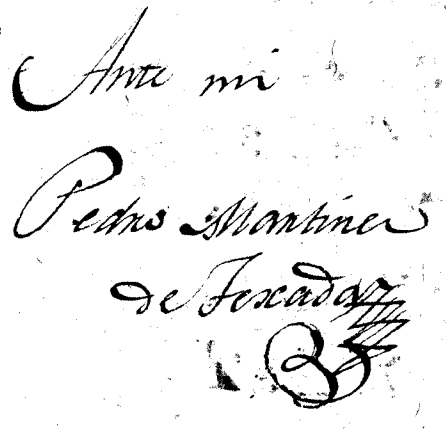 Ante mi
Pedro Martinez
de Texada